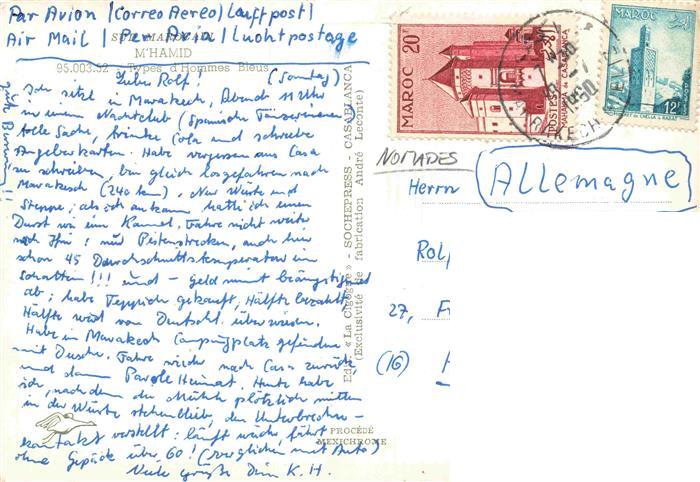 Par Avion | Correo Aereo | Luftpost |
Air Mail | Per Avia | Luchtpostage
M'HAMID
95.003.52 - Types d'Hommes Bleus
Lieber Rolf! (Sonntag)
Ich sitze in Marakech, Abend 11 Uhr
in einem Nachtclub (Spanische Tänzerinnen
tolle Sache, trinke Cola und schreibe
Angeberkarten. Habe vergessen aus Casa
zu schreiben, bin gleich losgefahren nach
Marakesch (240 km). Nur Wüste und
Steppe; als ich ankam hatte ich einen
Durst wie ein Kamel. Fahre nicht weiter
nach ! nur Pistenstrecken, auch hier
schon 45 Durchschnittstemperatur im
Schatten!!! und - Geld nimmt beängstigend
ab; habe Teppich gekauft, Hälfte bezahlt
Hälfte wird von Deutschl. überwiesen.
Habe in Marakech Campingplatz gefunden
mit Dusche. Fahre wieder nach Casa zurück,
und dann Parole Heimat. Heute habe
ich, nachdem die Mühle plötzlich mitten
in der Wüste stehenblieb, den Unterbrecher-
kontakt verstellt: läuft wieder, fährt
ohne Gepäck über 60! (verglichen mit Auto)
Viele Grüße Dein K. H.
!!
Edit. «La Cigogne» - SOCHEPRESS - CASABLANCA
(Exclusivité de fabrication André Leconte)
PROCÉDÉ
MEXICHROME
MAROC 20F
POSTES
MAHAKMA DE CASABLANCA
MAROC
12F
MARRAKECH
NOMADES
Herrn Allemagne
Rol
27, F
(16)